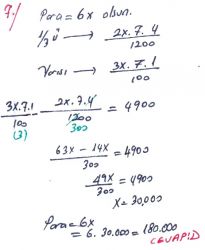 9-) Para = 6x olsun.
1/3 ü → 2x.7.4 / 1200
Yarısı → 3x.7.1 / 100
3x.7.1 / 100 - 2x.7.4 / 1200 = 4900
(3) 300
63x - 14x / 300 = 4900
49x / 300 = 4900
x = 30,000
Para = 6x
= 6. 30.000 = 180.000
CEVAP: D